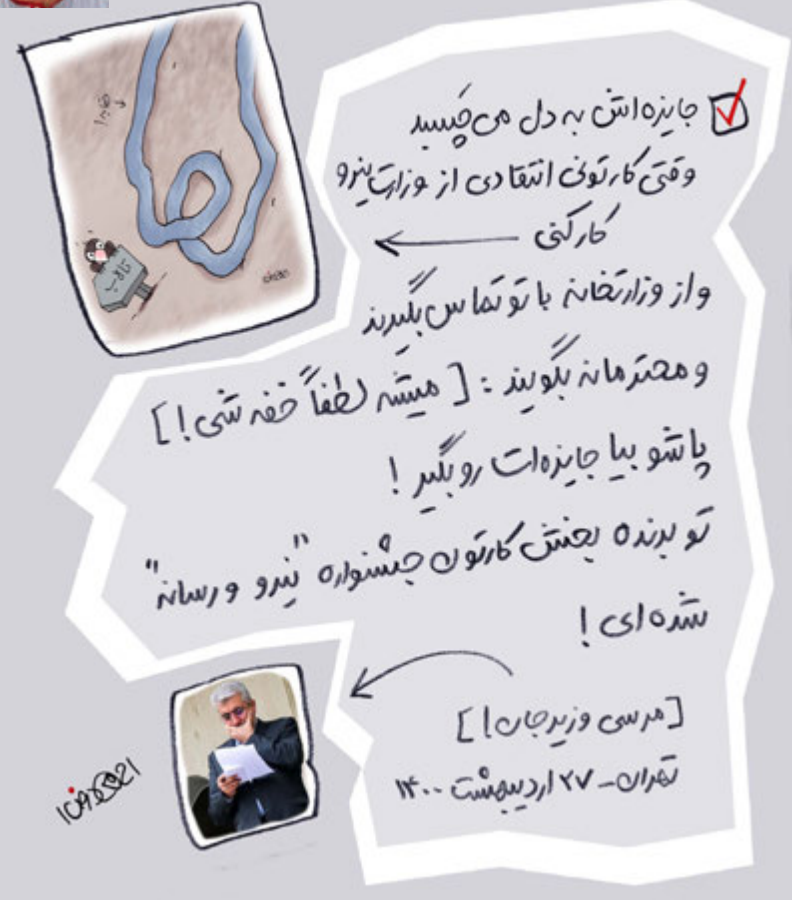 جایزه‌اش به دل می‌چسبد
وقتی کارتونی انتقادی از وزارت نیرو
کار کنی
و از وزارتخانه با تو تماس بگیرند
و محترمانه بگویند : [ میشه لطفاً خفه شی ! ]
پاشو بیا جایزه‌ات رو بگیر !
تو برنده بخش کارتون جشنواره "نیرو و رسانه"
شده‌ای !
[ مرسی وزیر جان ! ]
تهران - ۲۷ اردیبهشت ۱۴۰۰
تالاب